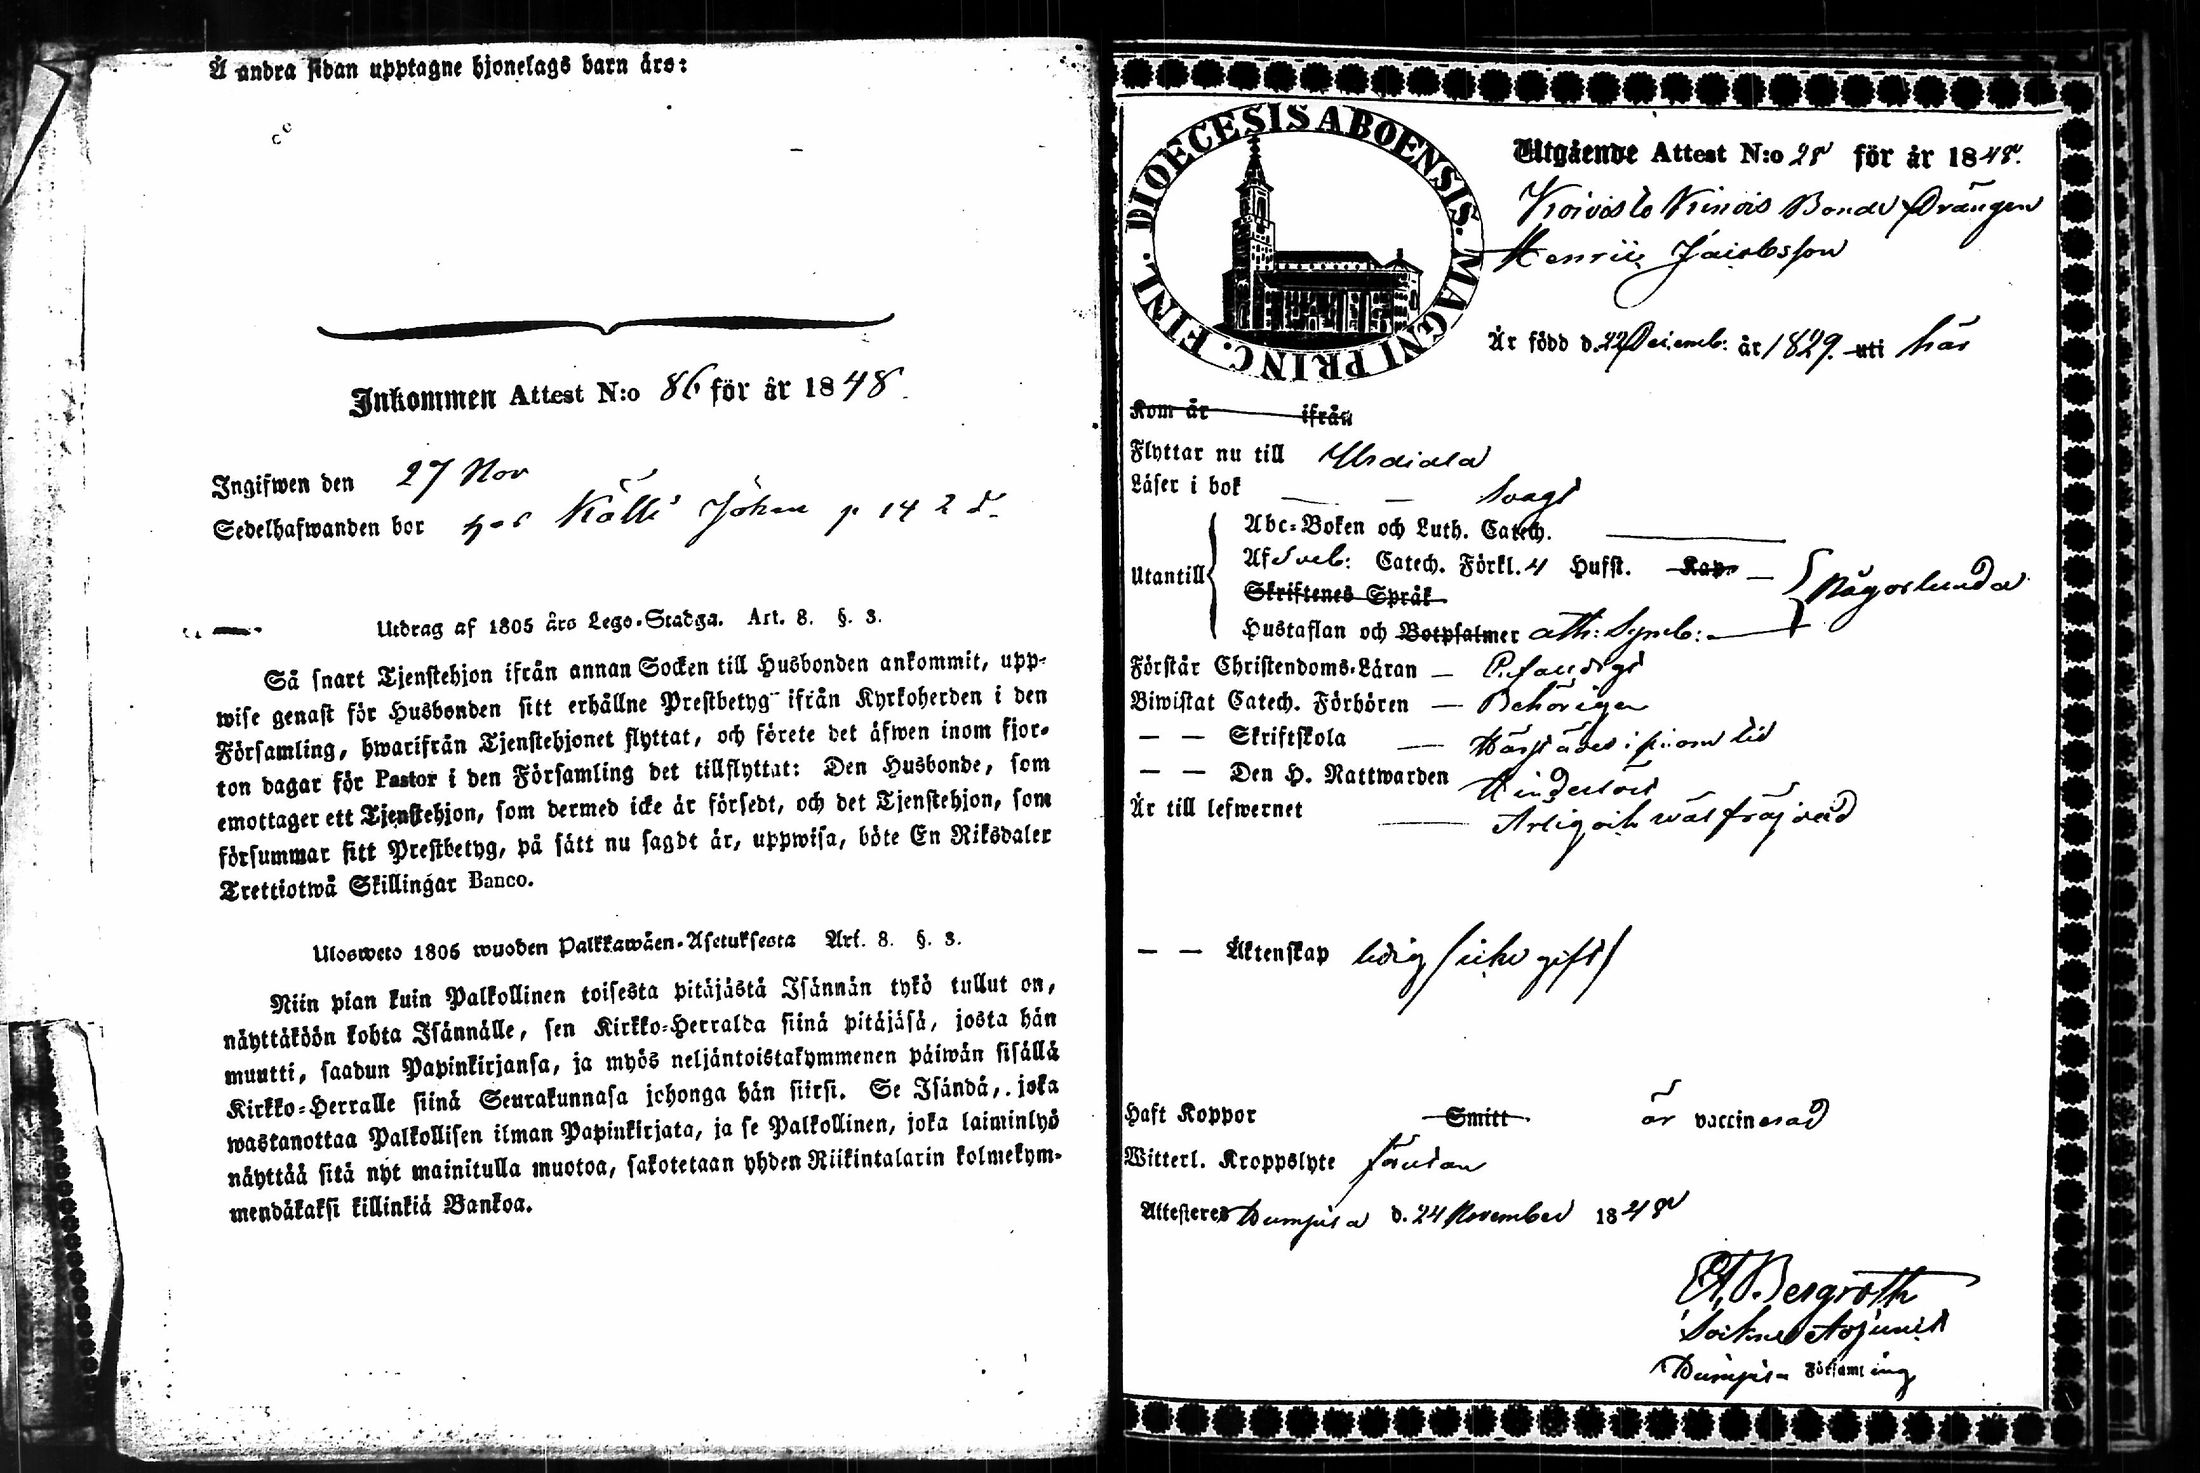 Å andra sidan upptagne hjonelags barn äro:
Inkommen Attest N:o 86 för år 1848.
Ingifwen den 27 Nov
Sedelhafwanden bor hos Kölli Johan p 14 2 d.
Utdrag af 1805 års Lego-Stadga. Art. 8. §. 3.
Så snart Tjenstehjon ifrån annan Socken till Husbonden ankommit, upp-
wise genast för Husbonden sitt erhållne Prestbetyg ifrån Kyrkoherden i den
Församling, hwarifrån Tjenstehjonet flyttat, och förete det äfwen inom fjor-
ton dagar för Pastor i den Församling det tillflyttat: Den Husbonde, som
emottager ett Tjenstehjon, som dermed icke är försedt, och det Tjenstehjon, som
försummar sitt Prestbetyg, på sätt nu sagdt är, uppwisa, böte En Riksdaler
Trettiotwå Skillingar Banco.
Ulosweto 1805 wuoden Palkkawäen-Asetuksesta Art. 8. §. 3.
Niin pian kuin Palkollinen toisesta pitäjästä Isännän tykö tullut on,
näyttäköön kohta Isännälle, sen Kirkko-Herralda siinä pitäjäsä, josta hän
muutti, saadun Papinkirjansa, ja myös neljäntoistakymmenen päiwän sisällä
Kirkko-Herralle siinä Seurakunnasa johonga hän siirsi. Se Isändä, joka
wastanottaa Palkollisen ilman Papinkirjata, ja se Palkollinen, joka laiminlyö
näyttää sitä nyt mainitulla muotoa, sakotetaan yhden Riikintalarin kolmekym-
mendäkaksi killinkiä Bankoa.
DIOECESIS ABOENSIS. MAGNI PRINC. FINL.
Utgående Attest N:o 28 för år 1848.
Koivisto Bonde Drängen
Henric Jacobsson
Är född d. 22 Decemb: år 1829. uti här
Kom år ifrån
Flyttar nu till
Läser i bok — — svagt
Utantill
Abc-Boken och Luth. Catech. —
Af Sveb: Catech. Förkl. 4 Hufst. Kap. —
Någorlunda
Skriftenes Språk
Hustaflan och Botpsalmer Ath: Symb: —
Förstår Christendoms-Läran —
Biwistat Catech. Förhören — Behörigen
— — Skriftskola —
— — Den H. Nattwarden Hinderlös
Är till lefwernet — Ärlig och wälfräjdad
— — Äktenskap ledig (icke gift)
Haft Koppor Smitt är vaccinerad
Witterl. Kroppslyte förutan
Attesteras d. 24 November 1848
Bergroth
Sockne Adjunct
Församling